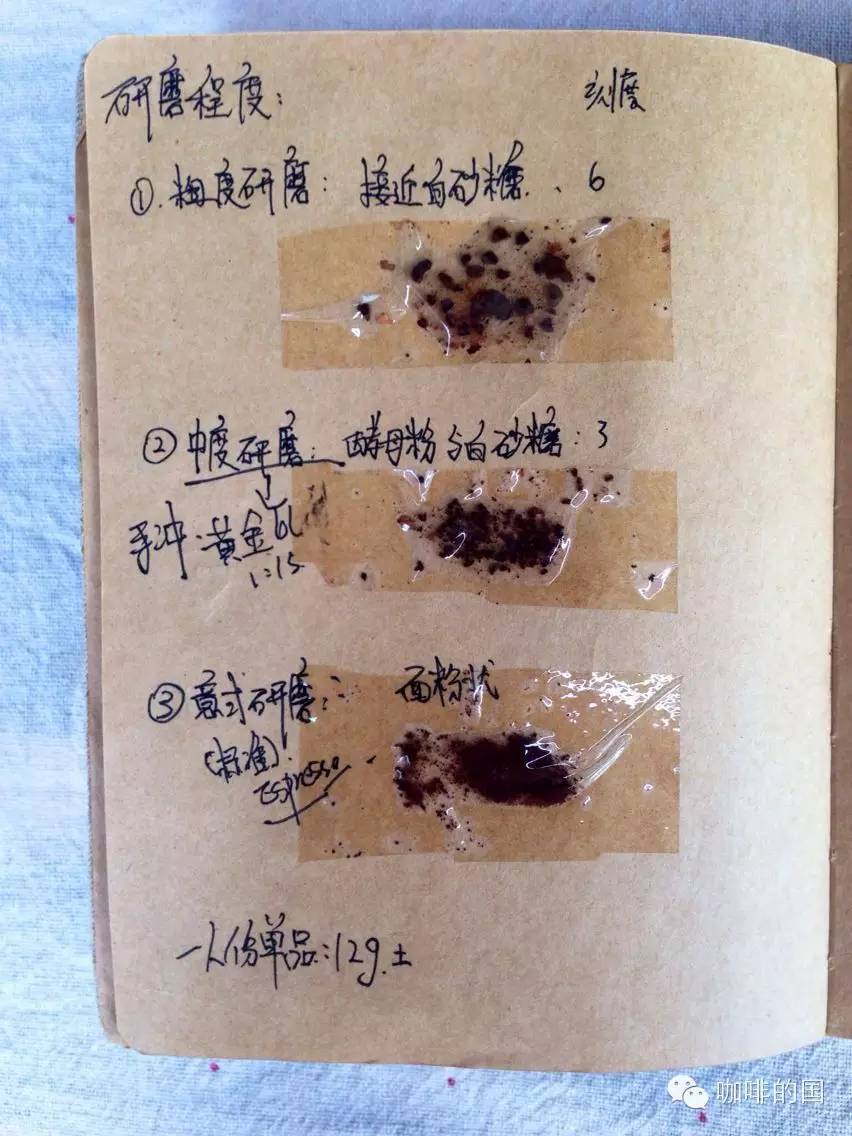 研磨程度： 刻度
①.粗度研磨：接近白砂糖、6
②中度研磨：酵母粉与白砂糖：3
手冲·黄金瓦
1:15
③意式研磨： 面粉状
(标准)
Espresso
一人份单品：12g.±
咖啡的国